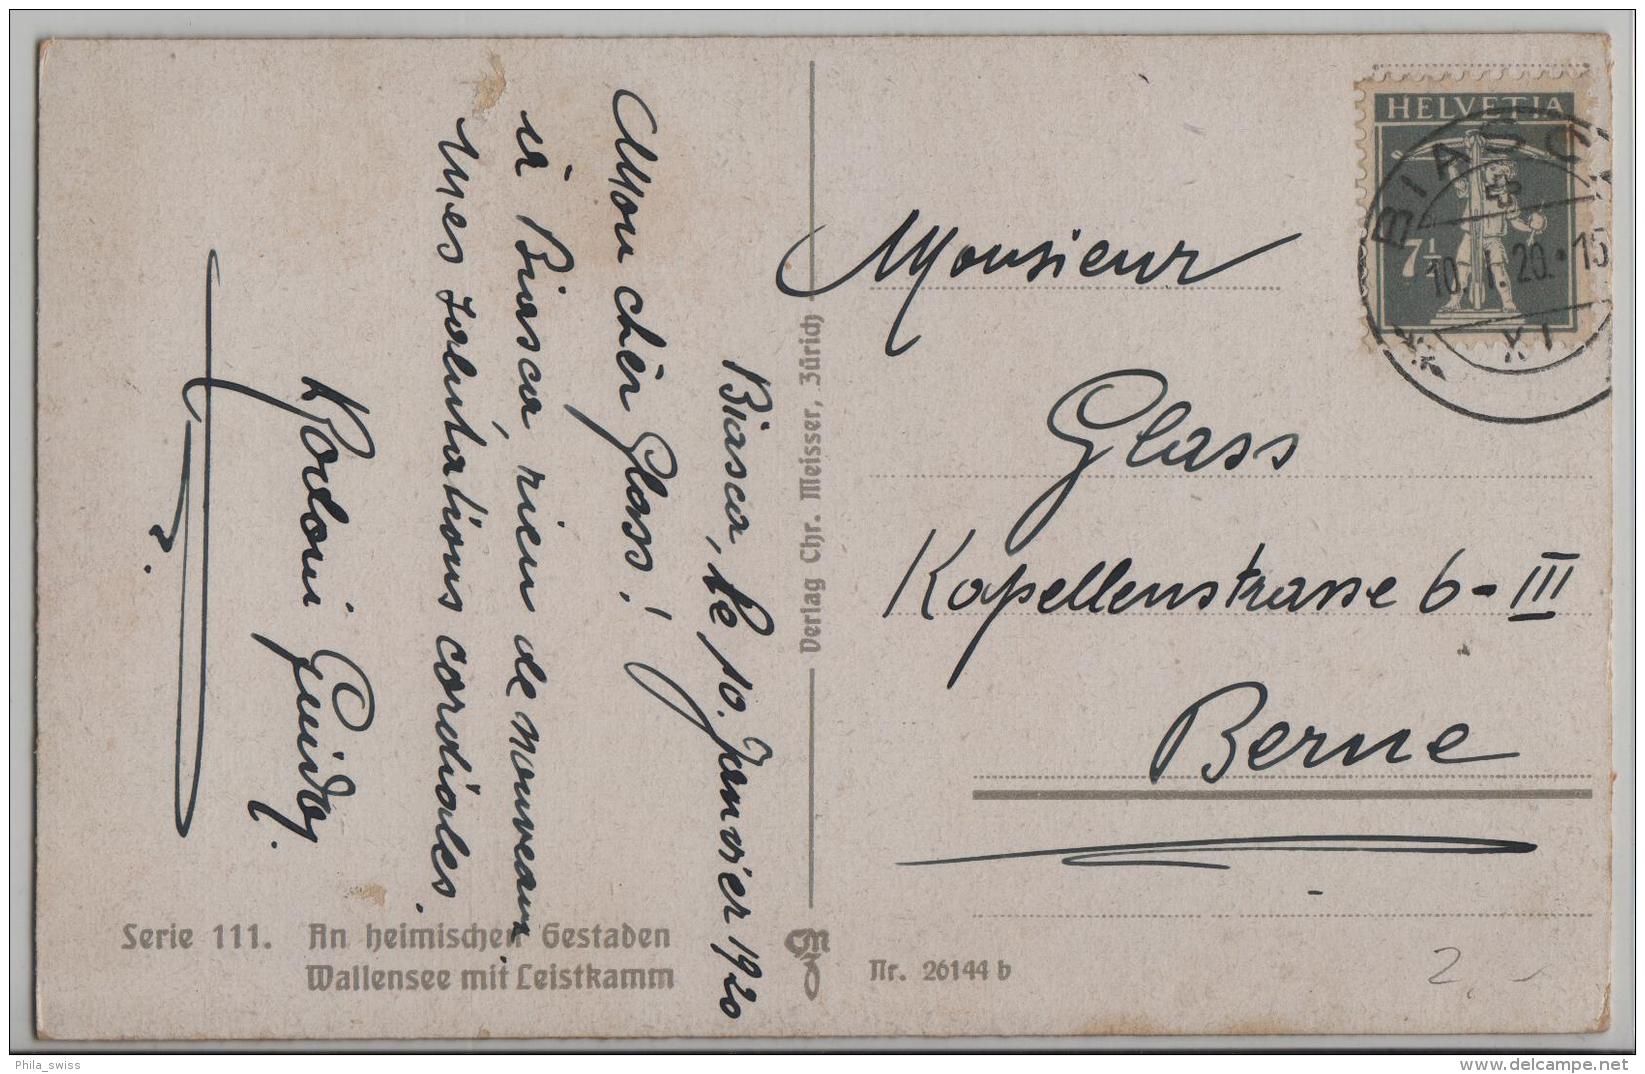 Biasca, le 10. Janvier 1920
Mon chèr Glass!
à Biasca, rien de nouveau
mes salutations cordiales.
Rodoni Guido.
Serie 111. An heimischen Gestaden
Wallensee mit Leistkamm
Verlag Chr. Meisser, Zürich
CM
HELVETIA
7½
BIASCA
10. I. 20. 15
XI
Monsieur
Glass
Kapellenstrasse 6-III
Berne
Nr. 26144 b
2,-
Phila_swiss
www.delcampe.net